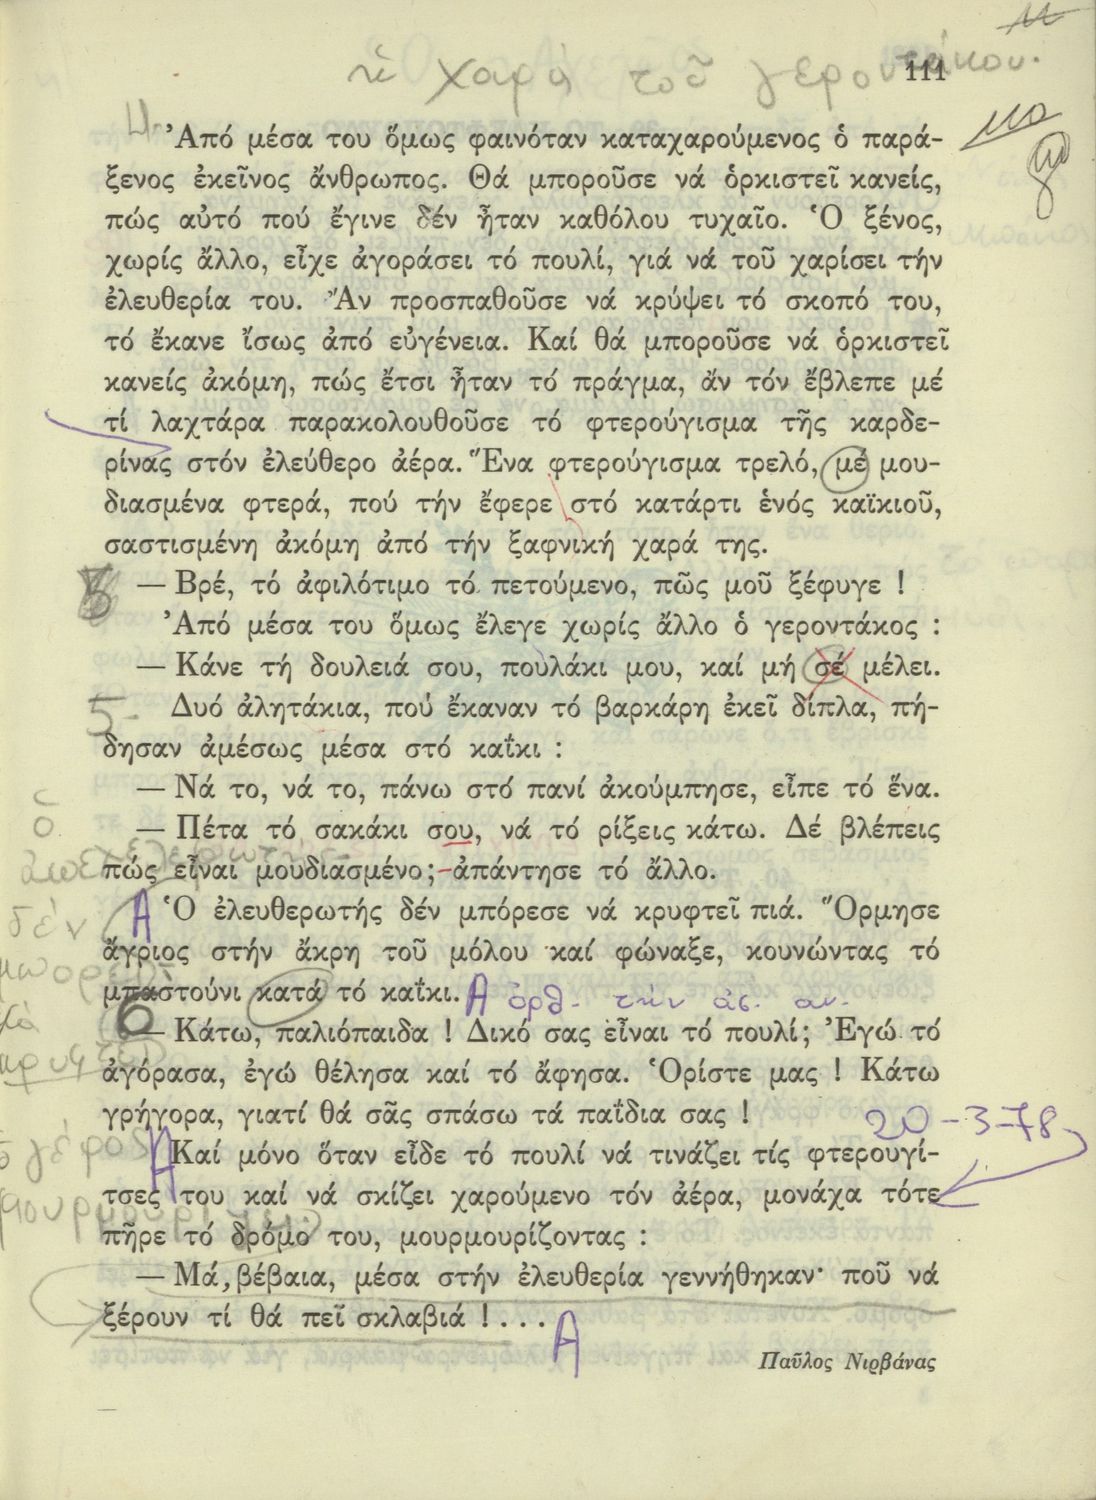 ἡ χαρά τοῦ γεροντάκου.
111
4.
Ἀπό μέσα του ὅμως φαινόταν καταχαρούμενος ὁ παρά-
ξενος ἐκεῖνος ἄνθρωπος. Θά μποροῦσε νά ὁρκιστεῖ κανείς,
πώς αὐτό πού ἔγινε δέν ἦταν καθόλου τυχαῖο. Ὁ ξένος,
χωρίς ἄλλο, εἶχε ἀγοράσει τό πουλί, γιά νά τοῦ χαρίσει τήν
ἐλευθερία του. Ἄν προσπαθοῦσε νά κρύψει τό σκοπό του,
τό ἔκανε ἴσως ἀπό εὐγένεια. Καί θά μποροῦσε νά ὁρκιστεῖ
κανείς ἀκόμη, πώς ἔτσι ἦταν τό πράγμα, ἄν τόν ἔβλεπε μέ
τί λαχτάρα παρακολουθοῦσε τό φτερούγισμα τῆς καρδε-
ρίνας στόν ἐλεύθερο ἀέρα. Ἕνα φτερούγισμα τρελό, μέ μου-
διασμένα φτερά, πού τήν ἔφερε στό κατάρτι ἑνός καϊκιοῦ,
σαστισμένη ἀκόμη ἀπό τήν ξαφνική χαρά της.
— Βρέ, τό ἀφιλότιμο τό πετούμενο, πῶς μοῦ ξέφυγε !
Ἀπό μέσα του ὅμως ἔλεγε χωρίς ἄλλο ὁ γεροντάκος :
— Κάνε τή δουλειά σου, πουλάκι μου, καί μή σέ μέλει.
5-
Δυό ἀλητάκια, πού ἔκαναν τό βαρκάρη ἐκεῖ δίπλα, πή-
δησαν ἀμέσως μέσα στό καΐκι :
— Νά το, νά το, πάνω στό πανί ἀκούμπησε, εἶπε τό ἕνα.
— Πέτα τό σακάκι σου, νά τό ρίξεις κάτω. Δέ βλέπεις
πώς εἶναι μουδιασμένο; - ἀπάντησε τό ἄλλο.
Α Ὁ ἐλευθερωτής δέν μπόρεσε νά κρυφτεῖ πιά. Ὅρμησε
ἄγριος στήν ἄκρη τοῦ μόλου καί φώναξε, κουνώντας τό
μπαστούνι κατά τό καΐκι. Α ὀρθ. τήν ἀσ. αν.
6
— Κάτω, παλιόπαιδα ! Δικό σας εἶναι τό πουλί; Ἐγώ τό
ἀγόρασα, ἐγώ θέλησα καί τό ἄφησα. Ὁρίστε μας ! Κάτω
γρήγορα, γιατί θά σᾶς σπάσω τά παΐδια σας !
20-3-78
Α Καί μόνο ὅταν εἶδε τό πουλί νά τινάζει τίς φτερουγί-
τσες του καί νά σκίζει χαρούμενο τόν ἀέρα, μονάχα τότε
πῆρε τό δρόμο του, μουρμουρίζοντας :
— Μά, βέβαια, μέσα στήν ἐλευθερία γεννήθηκαν· ποῦ νά
ξέρουν τί θά πεῖ σκλαβιά !... Α
Παῦλος Νιρβάνας
ὁ
δέν
ὁ γέρος